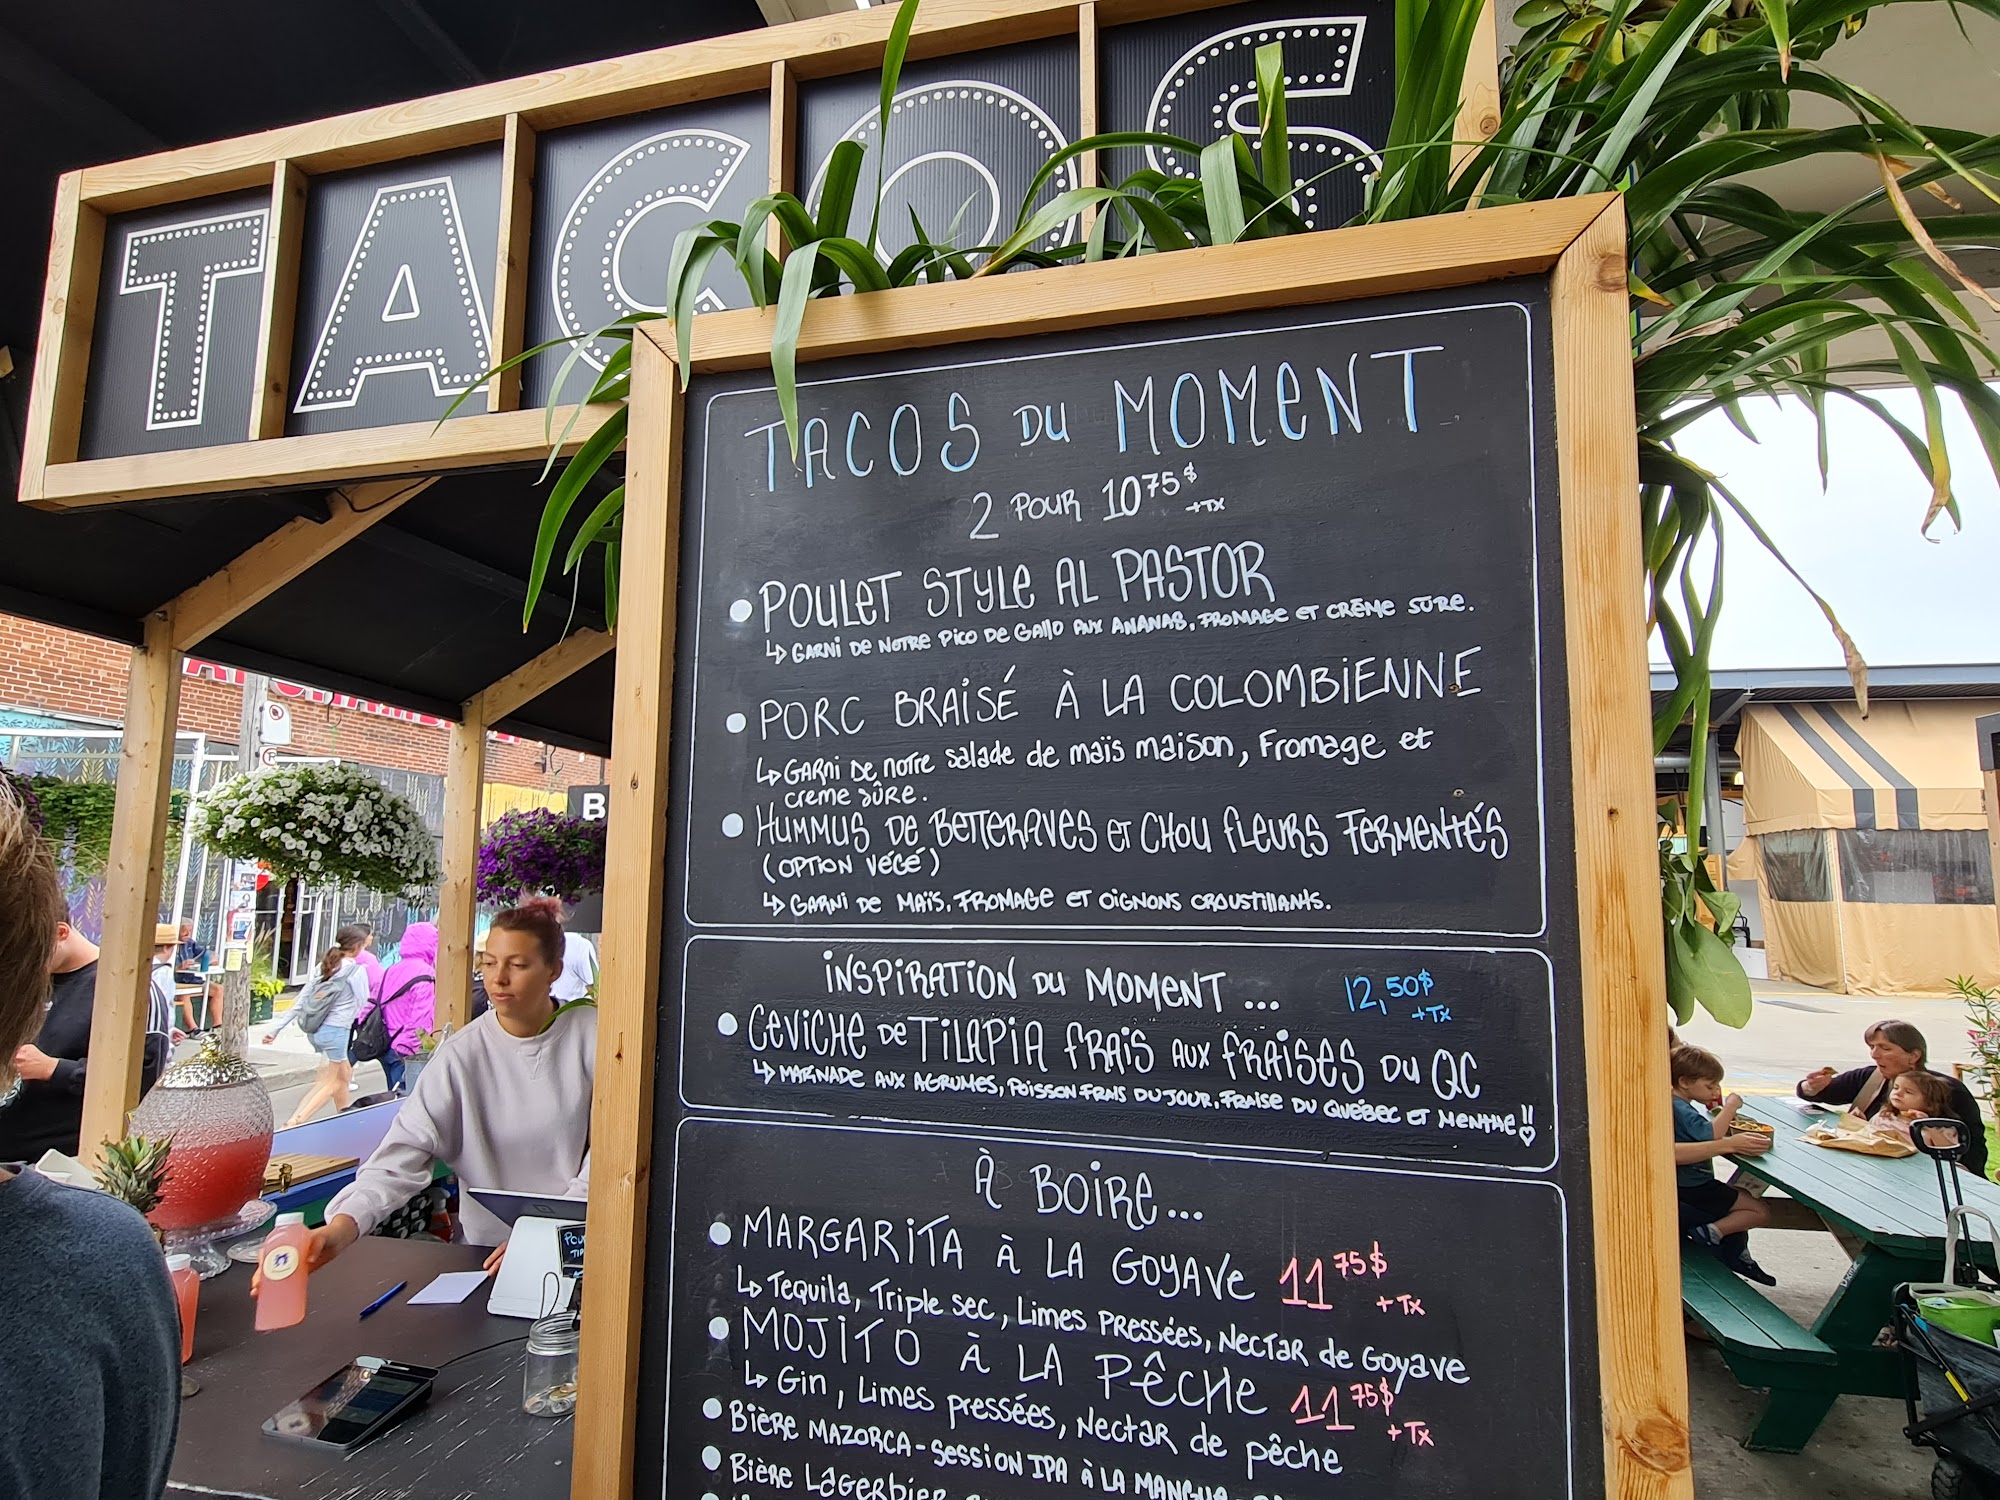 TACOS
TACOS DU MOMENT
2 POUR 10 75$ +TX
POULET STYLE AL PASTOR
↳ GARNI DE NOTRE PICO DE GALLO AUX ANANAS, FROMAGE ET CRÈME SÛRE.
PORC BRAISÉ À LA COLOMBIENNE
↳ GARNI DE NOTRE SALADE DE MAÏS MAISON, FROMAGE ET
CREME SÛRE.
HUMMUS DE BETTERAVES ET CHOU FLEURS FERMENTÉS
(OPTION VÉGÉ)
↳ GARNI DE MAÏS, FROMAGE ET OIGNONS CROUSTILLANTS.
INSPIRATION DU MOMENT ... 12,50$ +TX
CEVICHE DE TILAPIA FRAIS AUX FRAISES DU QC
↳ MARINADE AUX AGRUMES, POISSON FRAIS DU JOUR, FRAISE DU QUÉBEC ET MENTHE!!
À BOIRE...
MARGARITA À LA GOYAVE 11 75$ +TX
↳ TEQUILA, TRIPLE SEC, LIMES PRESSÉES, NECTAR DE GOYAVE
MOJITO À LA PÊCHE 11 75$ +TX
↳ GIN, LIMES PRESSÉES, NECTAR DE PÊCHE
BIÈRE MAZORCA - SESSION IPA À LA MANGUE
BIÈRE LAGERBIER
B